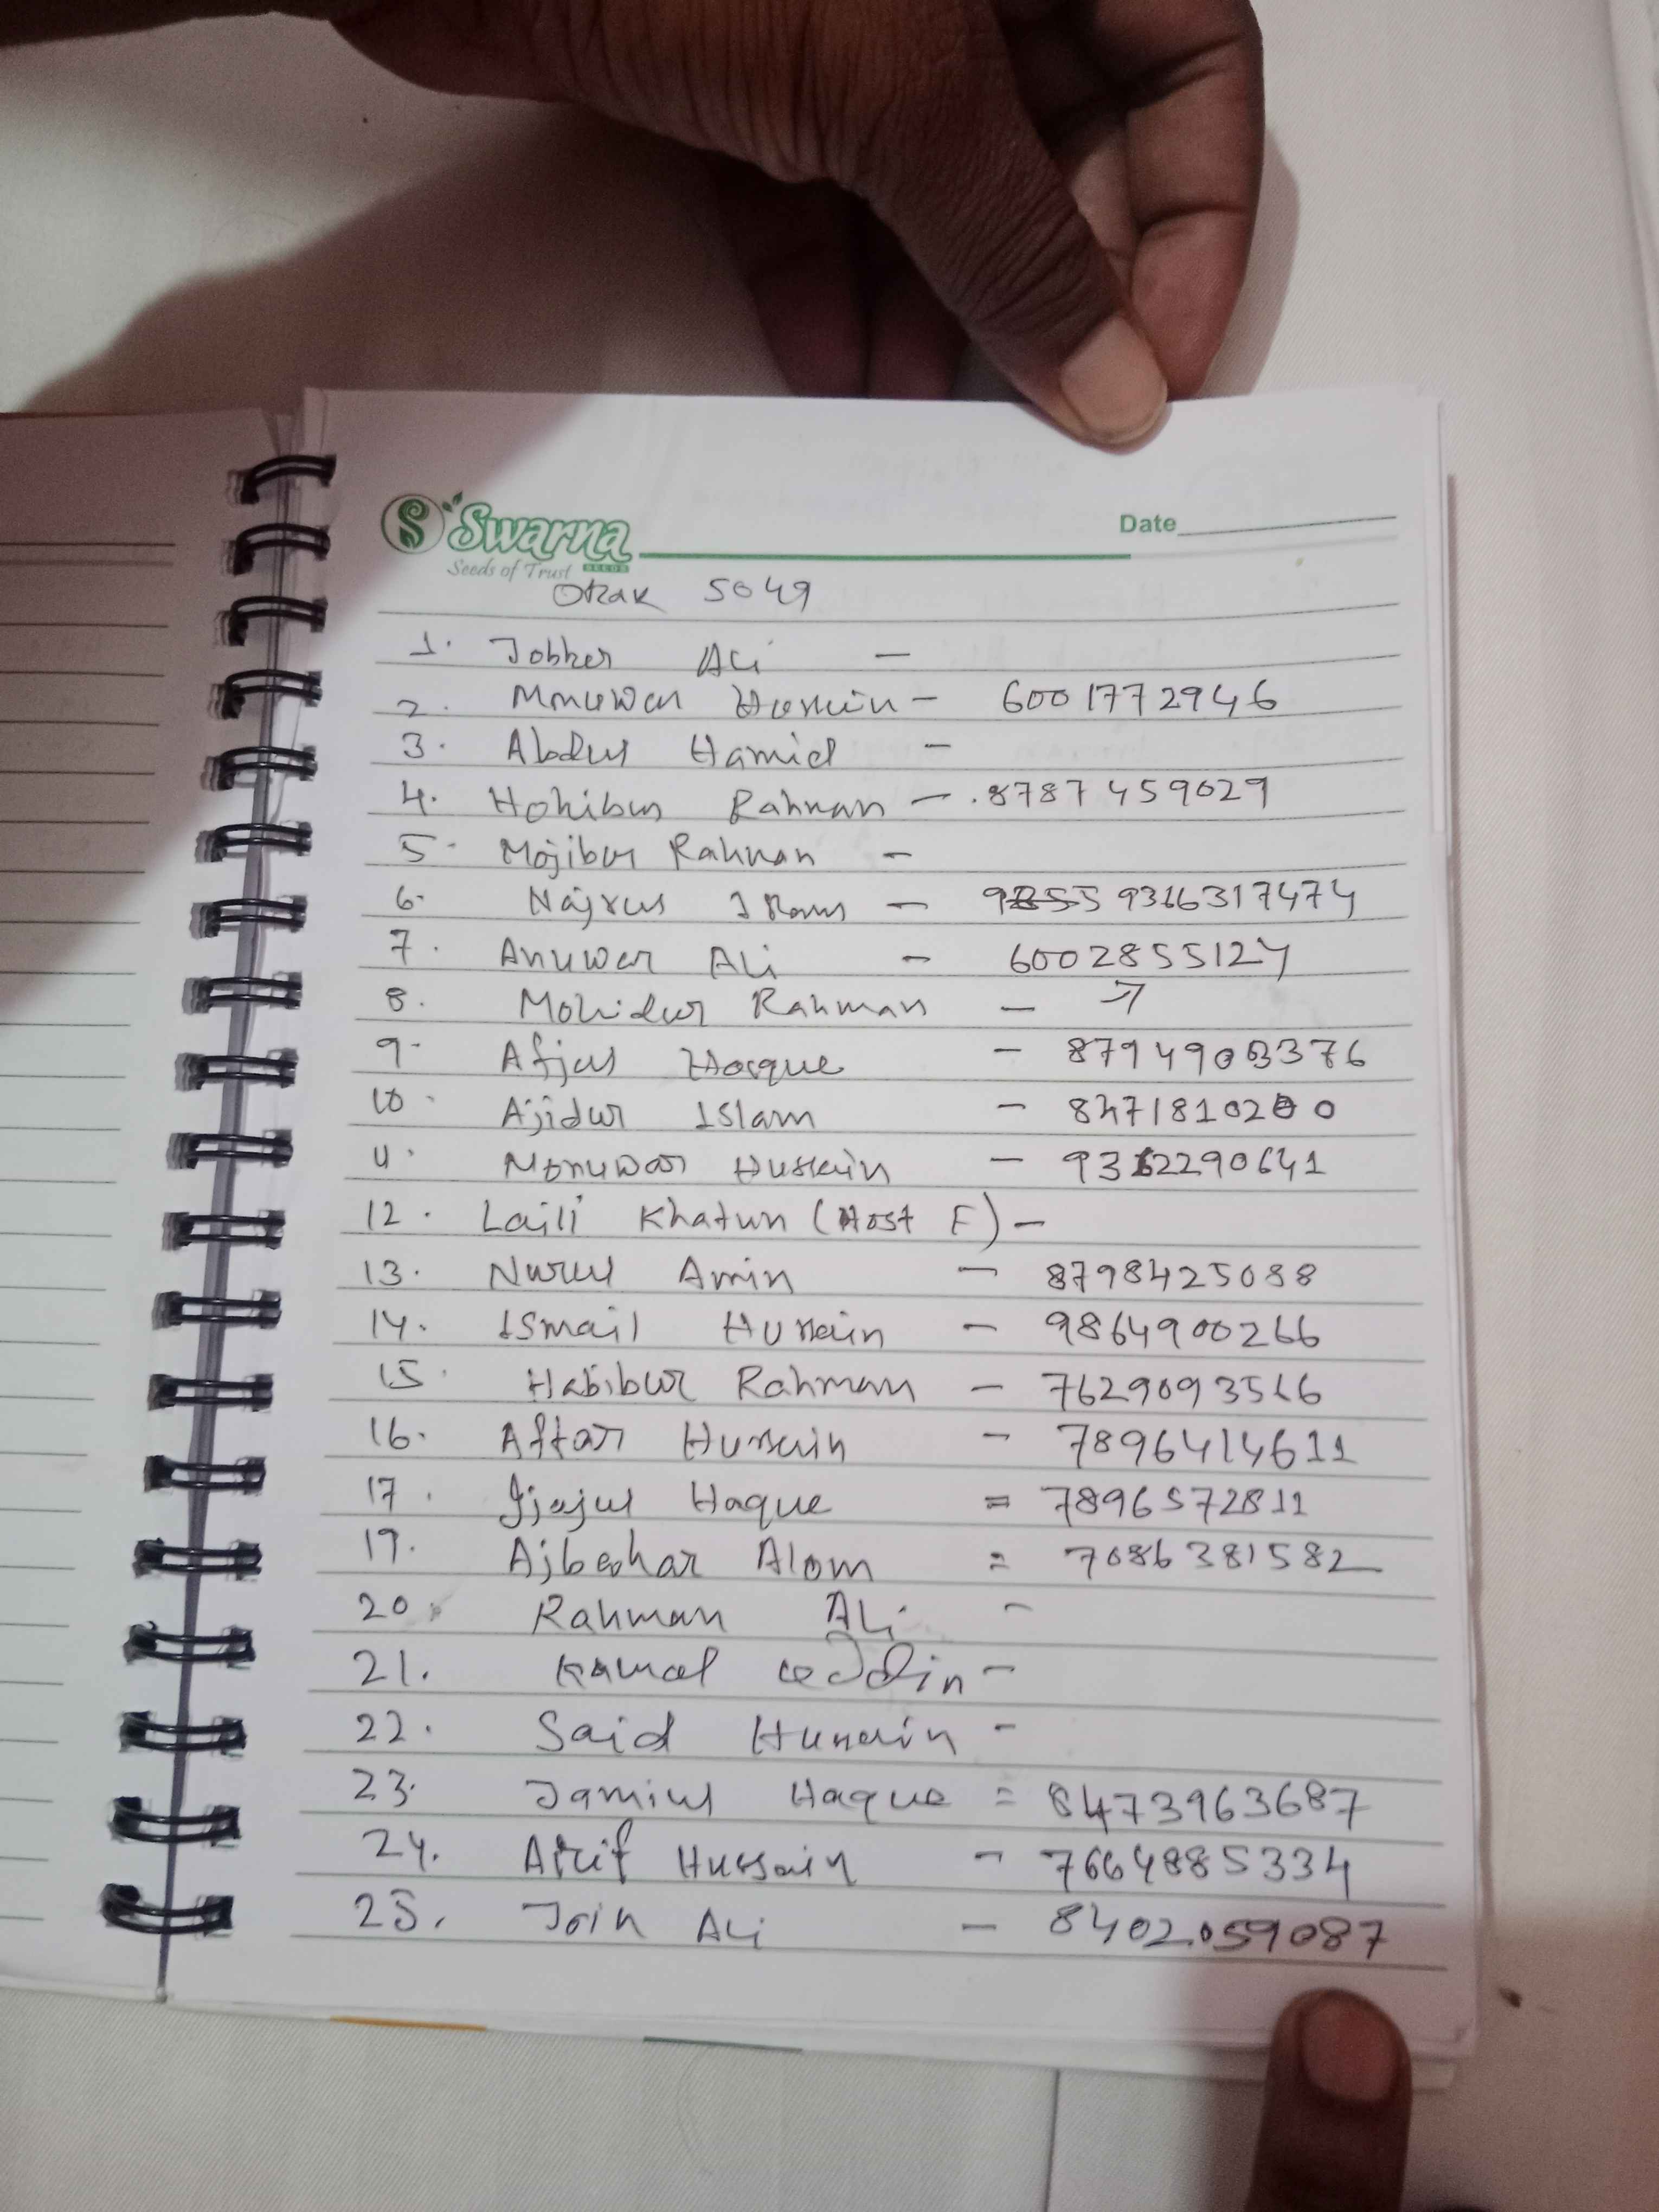 Swarna
SEEDS
Seeds of Trust
Date
OKRAK 5049
1. Jobber Ali -
2. Monuwar Hussain - 6001772946
3. Abdul Hamid -
4. Hohibur Rahman - 8787459029
5. Mojibur Rahman -
6. Najrul Islam - 9316317474
7. Anuwar Ali - 6002855124
8. Mohidur Rahman -
9. Afjal Hoque - 8794903376
10. Ajidur Islam - 8471810200
11. Monuwar Hussain - 9362290641
12. Laili Khatun (Host F) -
13. Nurul Amin - 8798425088
14. Ismail Hussain - 9864900266
15. Habibur Rahman - 7629093516
16. Aftar Hussain - 7896414611
17. Ijajul Haque = 7896572811
19. Ajbahar Alom = 7086381582
20. Rahman Ali -
21. Kamal uddin -
22. Said Hussain -
23. Jamiul Haque = 8473963687
24. Arif Hussain - 7664885334
25. Join Ali - 8402059087